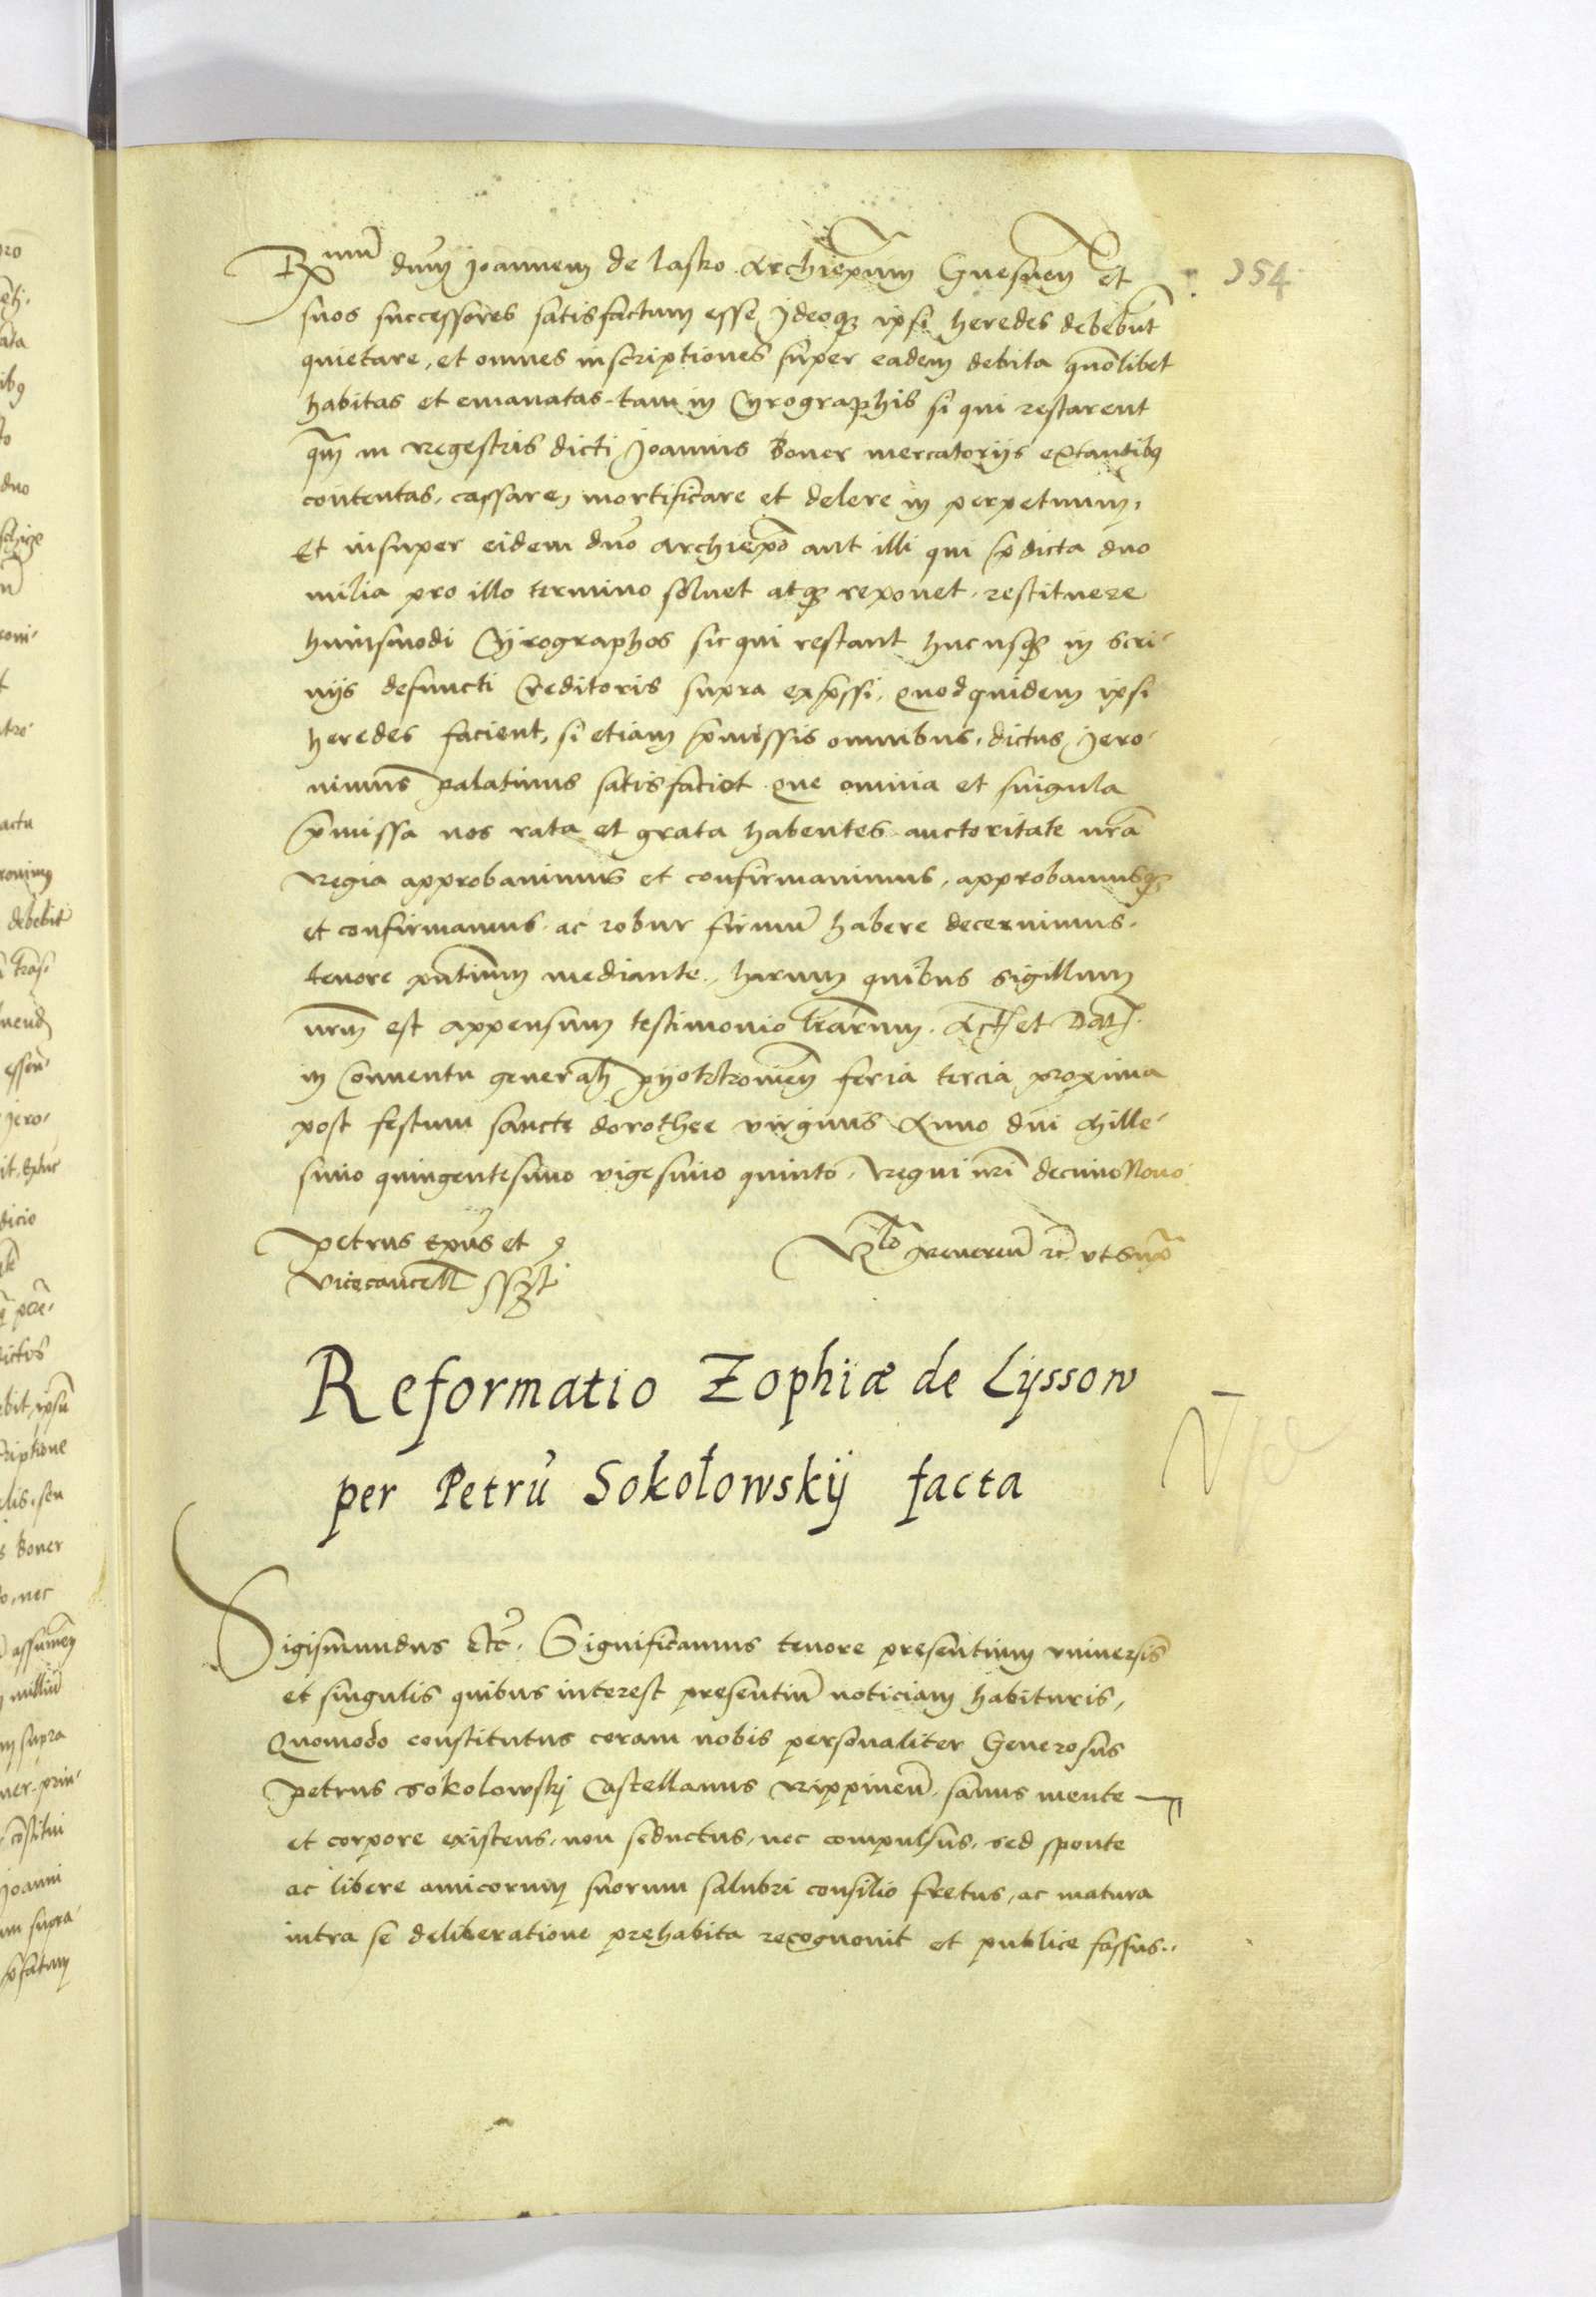 354
R mu͞ dnu͞m Joannem de lasko Archiep͞um Gnesnen͞ et
suos successores satisfactum esse Jdeoq; ipsi heredes debebu͞t
quietare, et omnes inscriptiones super eadem debita quo͞libet
habitas et emanatas tam in Cyrographis si qui restarent
q͞m in Regestris dicti Joannis Boner mercatorijs extantib9
contentas, cassare, mortificare et delere in perpetuum,
Et insuper eidem dn͞o archiep͞o aut illi qui p͞dicta duo
milia pro illo termino soluet atq; reponet, restituere
huiusmodi Cyrographos sic qui restant hucusq; in scri-
nijs defuncti Creditoris supra exp͞ssi, quod quidem ipsi
heredes facient, si etiam p͞missis omnibus, dictus Jero-
nimus palatinus satisfaciet que omnia et singula
p͞missa nos rata et grata habentes auctoritate nr͞a
Regia approbauimus et confirmauimus, approbamusq;
et confirmamus ac robur firmu͞ habere decernimus.
tenore pn͞tium mediante, harum quibus sigillum
nr͞m est appensum testimonio lr͞arum. Act et Dat.
in Conuentu general͞ pyotrkouien͞ feria tercia proxima
post festum sancte dorothee virginis Anno dn͞i Mille-
simo quingentesimo vigesimo quinto, Regni nr͞i decimo Nono
petrus ep͞us et
Vicecancell͞ sszt
R͞lo Reueren͞ rc͞ vt sup͞
Reformatio Zophiæ de Lyssow
per Petru͞ Sokołowskij facta
Sigismundus etc͞. Significamus tenore presentium vniuersis
et singulis quibus interest presentiu͞ noticiam habituris,
Quomodo constitutus coram nobis personaliter Generosus
petrus sokolowskj Castellanus Rippinen͞ sanus mente
et corpore existens, non seductus, nec compulsus, sed sponte
ac libere amicorum suorum salubri consilio fretus, ac matura
intra se deliberatione prehabita recognouit et publice fassus..